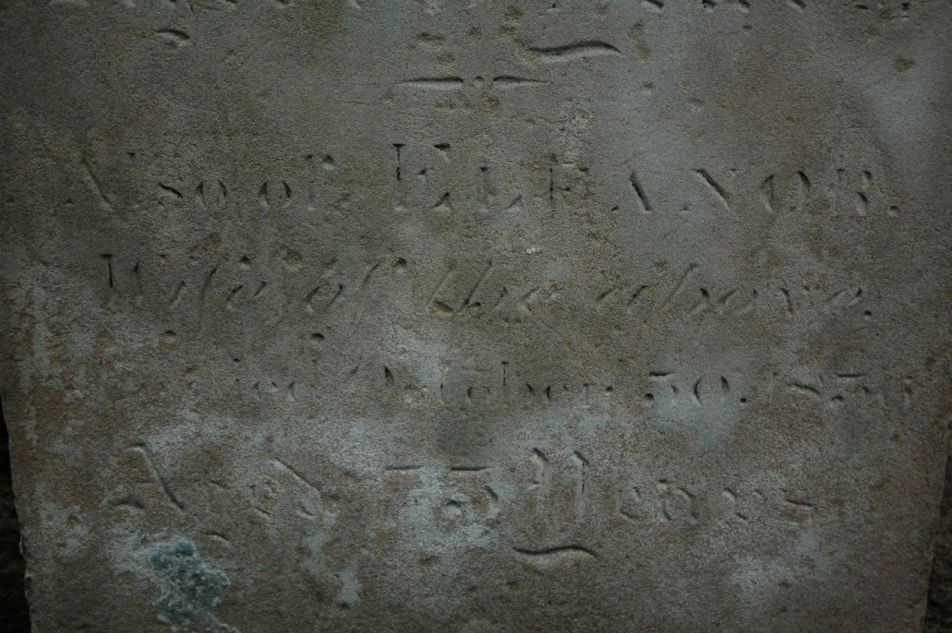 Also of, ELEANOR,
Wife of the above
died October, 30,
Aged 75 Years